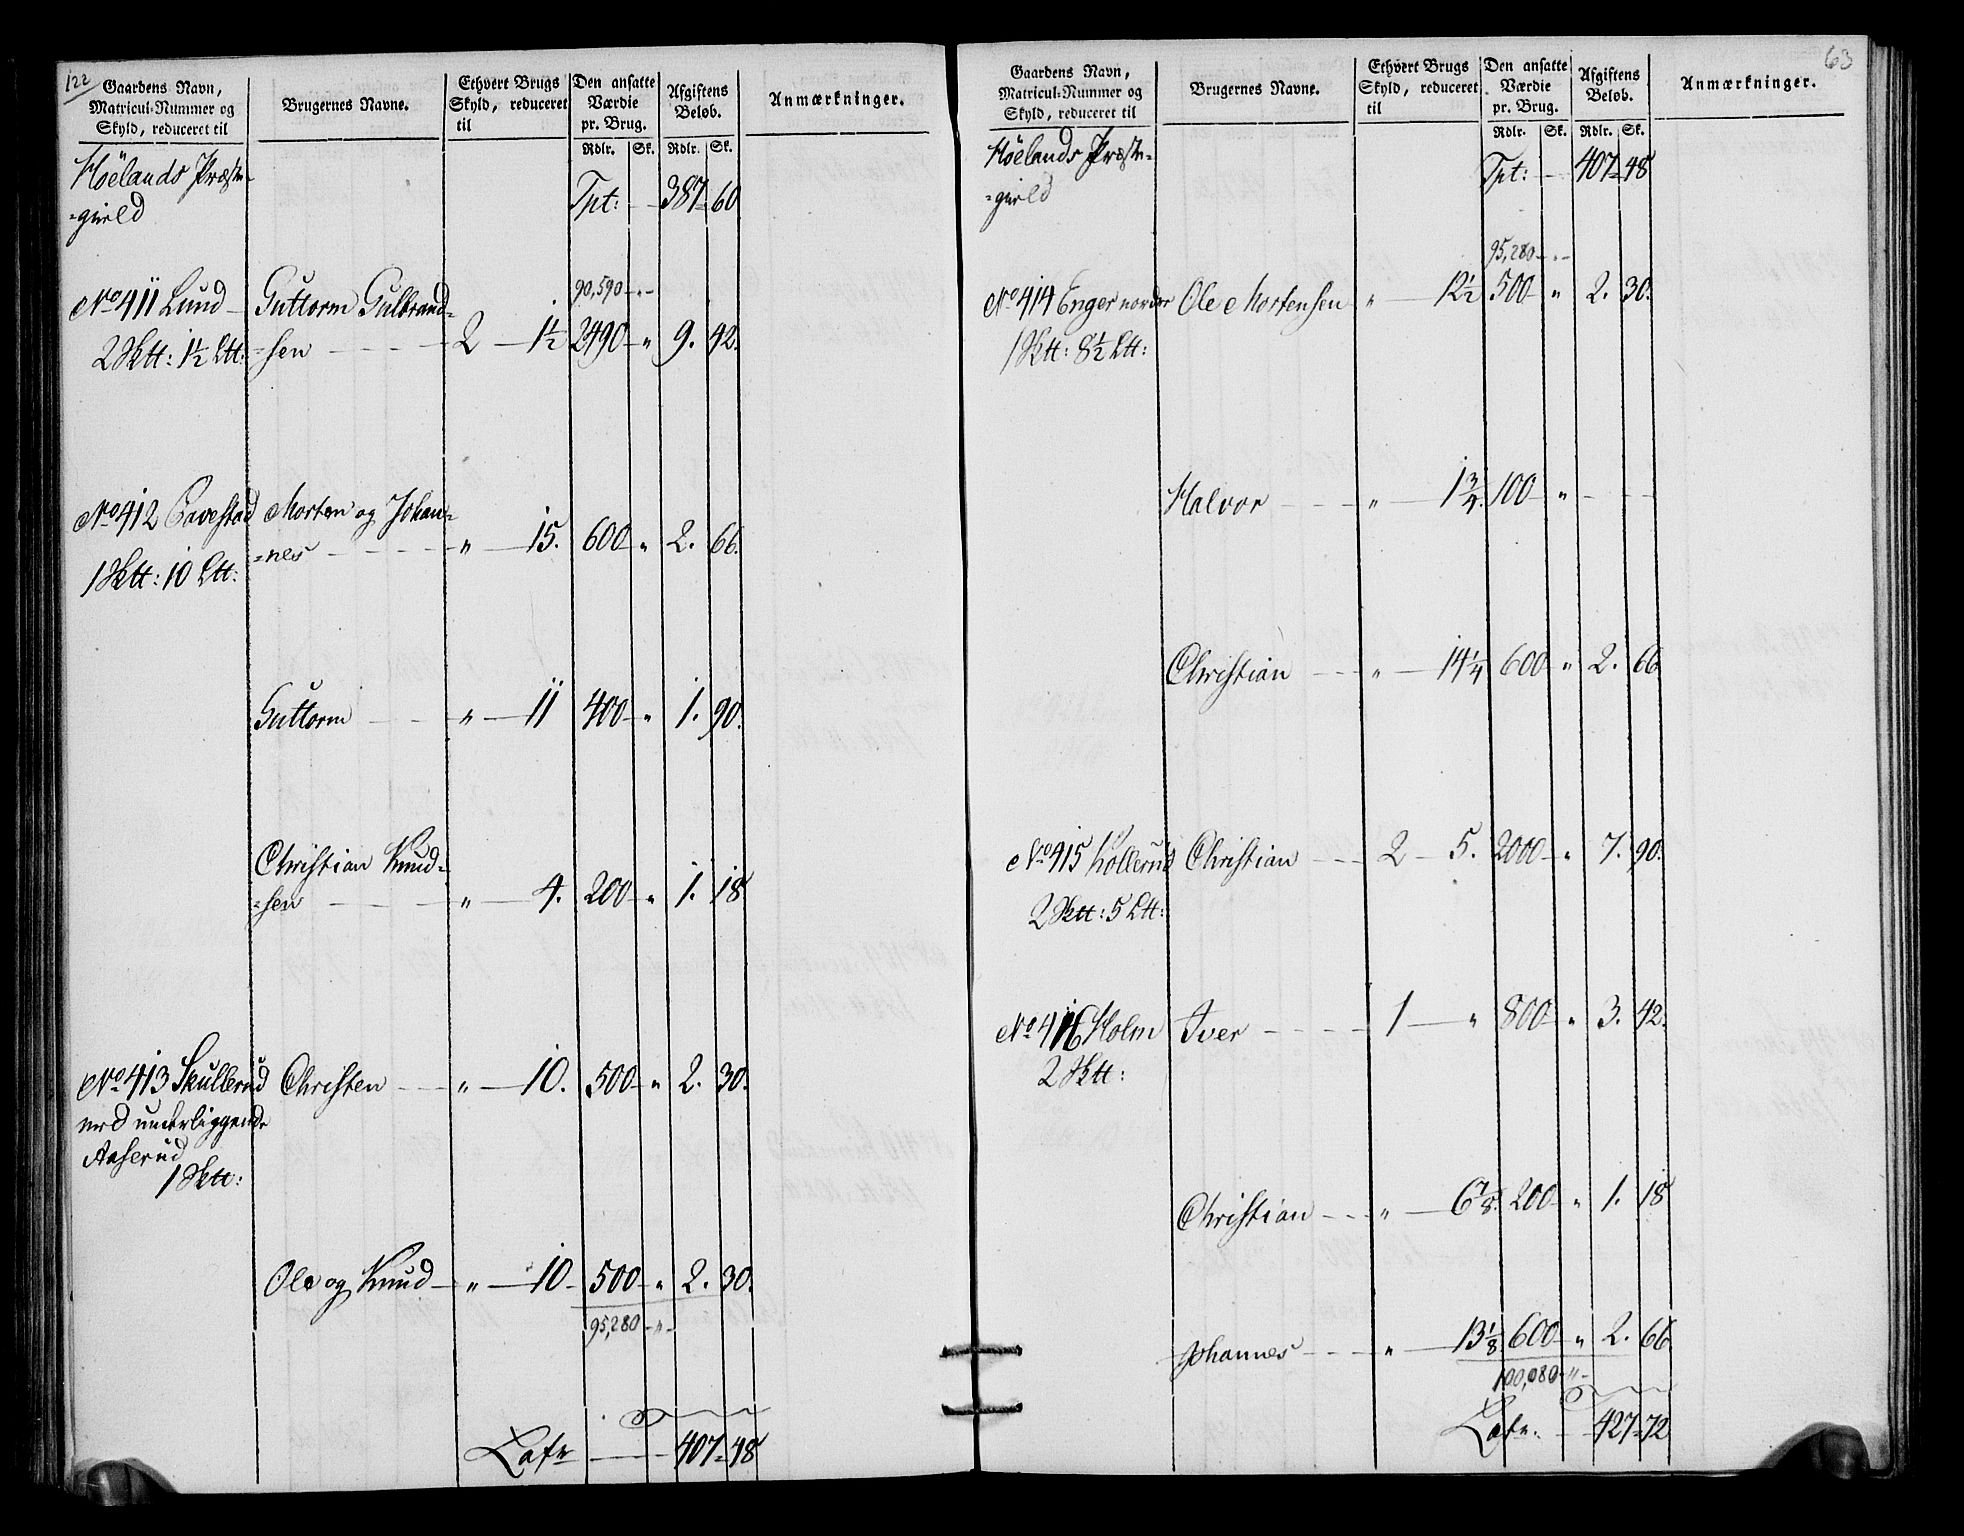 122
Gaardens Navn, Matricul-Nummer og Skyld, reduceret til
Brugernes Navne.
Ethvert Brugs Skyld, reduceret til
Den ansatte Værdie pr. Brug.
Afgiftens Beløb.
Anmærkninger.
Rdlr. Sk. Rdlr. Sk.
Höelands Præste-
=gield
Tpt: — 387 = 60
90,590 - " -
No 411 Lund — Guttorm Gulbrand=
2 Sktt: 1½ Ltt: =sen — 2 — 1½ 2490 — " 9. 42.
No 412 Morten og Johan=
1 Sktt: 10 Ltt: =nes — " — 15. 600 — " 2. 66.
Guttorm — " — 11 400 — " 1. 90.
Christian Knud=
=sen — " — 4. 200 — " 1. 18
No 413 Skullerud Christen — " — 10. 500 — " 2. 30.
med underliggende
Aaserud
1 Sktt:
Ole og Knud — " — 10 — 500 — " 2. 30.
95,280 - " -
Latr — 407 = 48
63
Gaardens Navn, Matricul-Nummer og Skyld, reduceret til
Brugernes Navne.
Ethvert Brugs Skyld, reduceret til
Den ansatte Værdie pr. Brug.
Afgiftens Beløb.
Anmærkninger.
Rdlr. Sk. Rdlr. Sk.
Höelands Præste=
=gield
Tpt: — 407 = 48
95,280 - " -
No 414 Enger nordre Ole Mortensen " — 12½ 500 — " 2. 30.
1 Sktt: 8½ Ltt:
Halvor — " — 1¾. 100 — " — —
Christian — " — 14¼ 600 — " 2. 66
No 415 Kollerud Christian — 2 — 5. 2000 — " 7. 90.
2 Sktt: 5 Ltt:
No 416 Holm Iver — 1 — " 800 — " 3. 42.
2 Sktt:
Christian — " — 6⅞. 200 — " 1. 18
Johannes — " — 13⅛ 600 — " 2. 66.
100,080 - " -
Latr. — 427 = 72